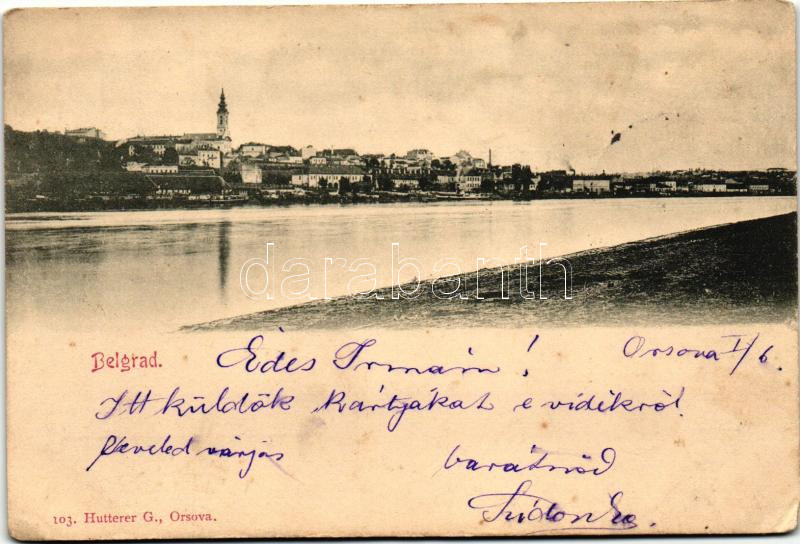 darabanth
Belgrad.
Édes Irmám!
Orsova I/6.
Itt küldök kártyákat e vidékről
leveled várja
barátnőd
Szidonka.
103. Hutterer G., Orsova.